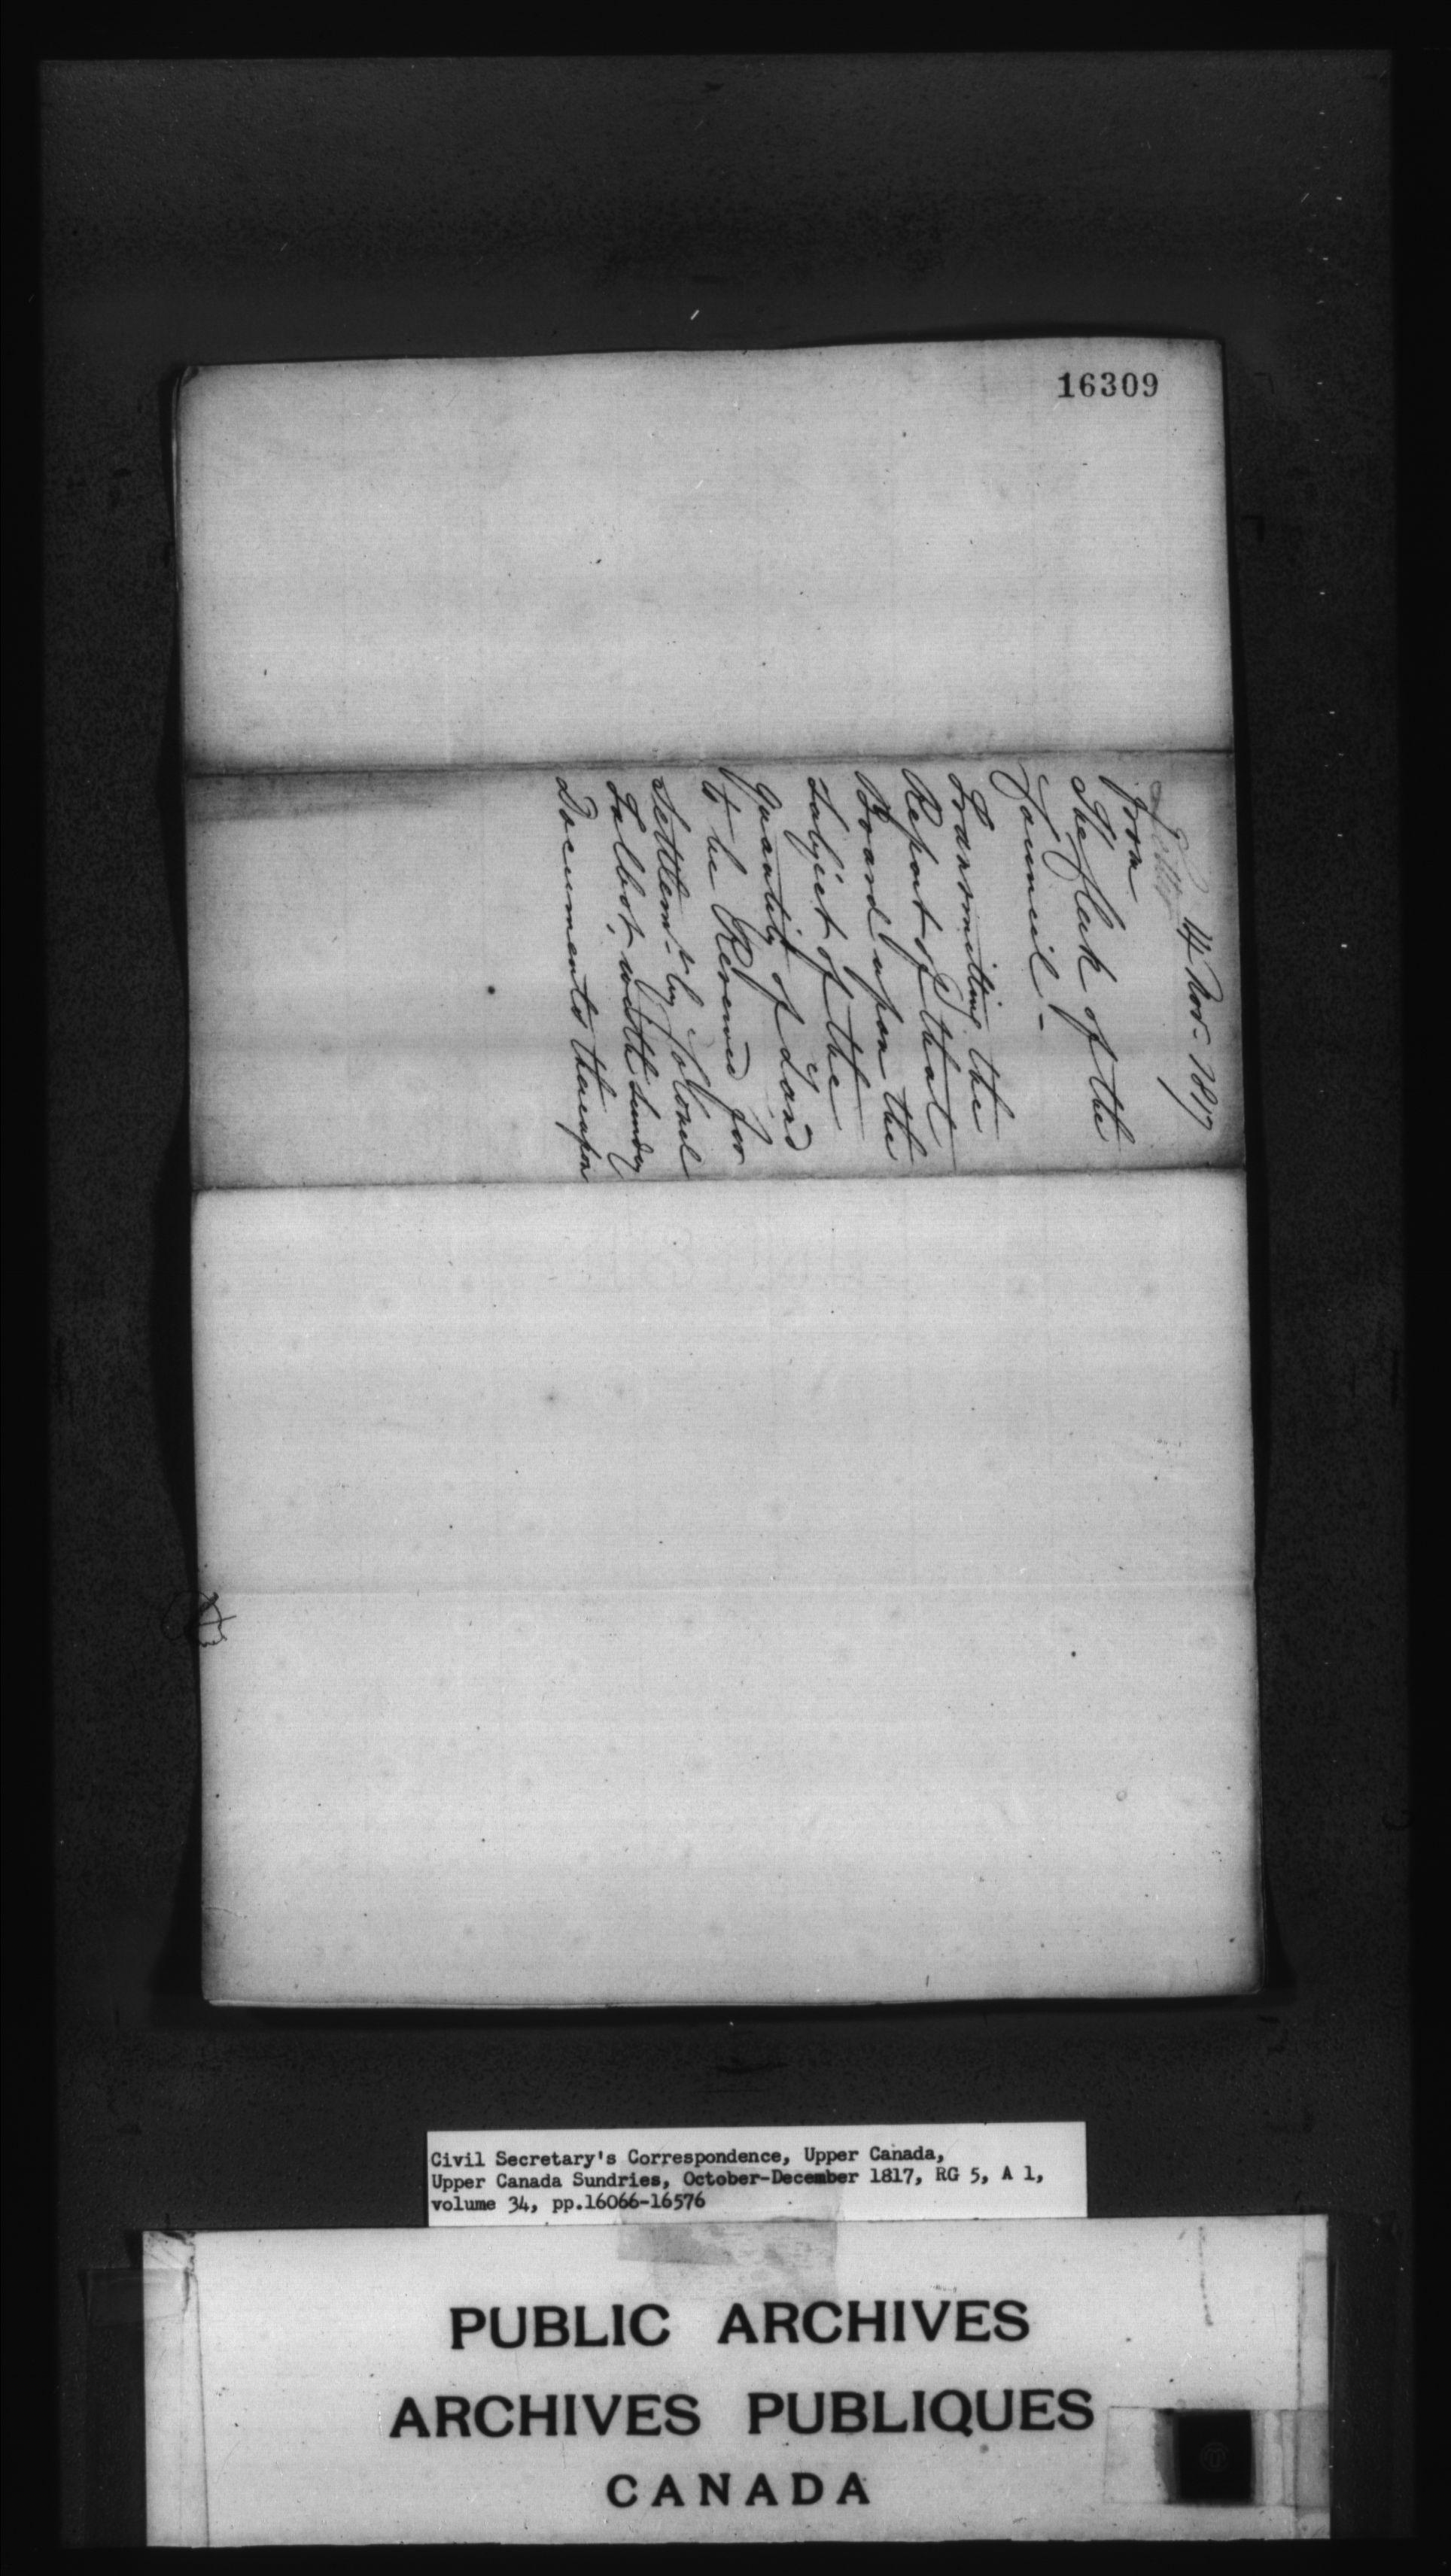 16309
14 Nov. 1817
Letter
from
The Clerk of the
Council -
Transmitting the
Report of that
Board upon the
Subject of the
Quantity of Land
to be Reserved for
Settlem.t by Colonel
Talbot, with sundry
Documents thereupon
Civil Secretary's Correspondence, Upper Canada,
Upper Canada Sundries, October-December 1817, RG 5, A 1,
volume 34, pp.16066-16576
PUBLIC ARCHIVES
ARCHIVES PUBLIQUES
CANADA